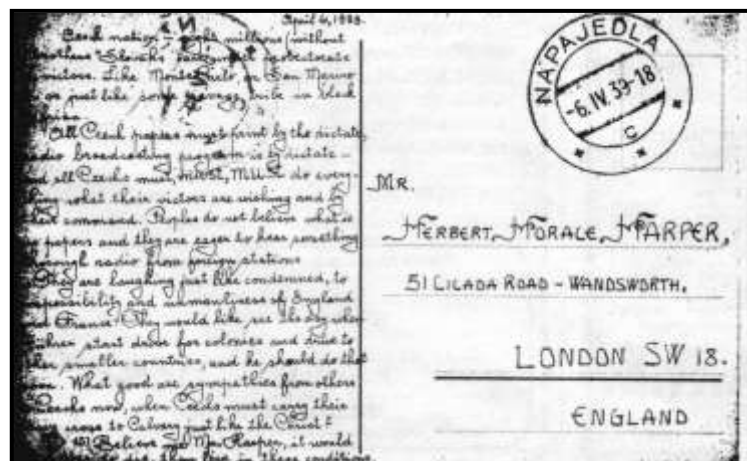 April 6, 1939.
Czech nation – eight millions (without
brothers Slovaks) background protectorate
victors. Like Monte or San Marino
or just like some savage tribe in black
All Czech papers must print by the dictate
radio broadcasting program is by dictate –
and all Czechs must, must, must do every-
thing what their victors are wishing and
their command. Peoples do not believe what is
papers and they are eager to hear something
through radio from foreign stations
They are laughing just like condemned, to
and of England
and France. They would like see the day when
start drive for colonies and drive to
other smaller countries, and he should do that
What good are sympathies from others
Czechs now, when Czechs must carry their
cross to Calvary just like the Christ?
Believe me Mr. Harper, it would
die than live in these conditions.
NAPAJEDLA
-6.IV.39-18
C
MR.
HERBERT HORALE HARPER,
51 LILADA ROAD – WANDSWORTH.
LONDON SW 18.
ENGLAND